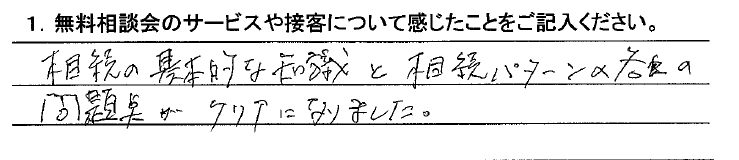 1. 無料相談会のサービスや接客について感じたことをご記入ください。
相続の基本的な知識と相続パターンの各々の
問題点がクリアになりました。